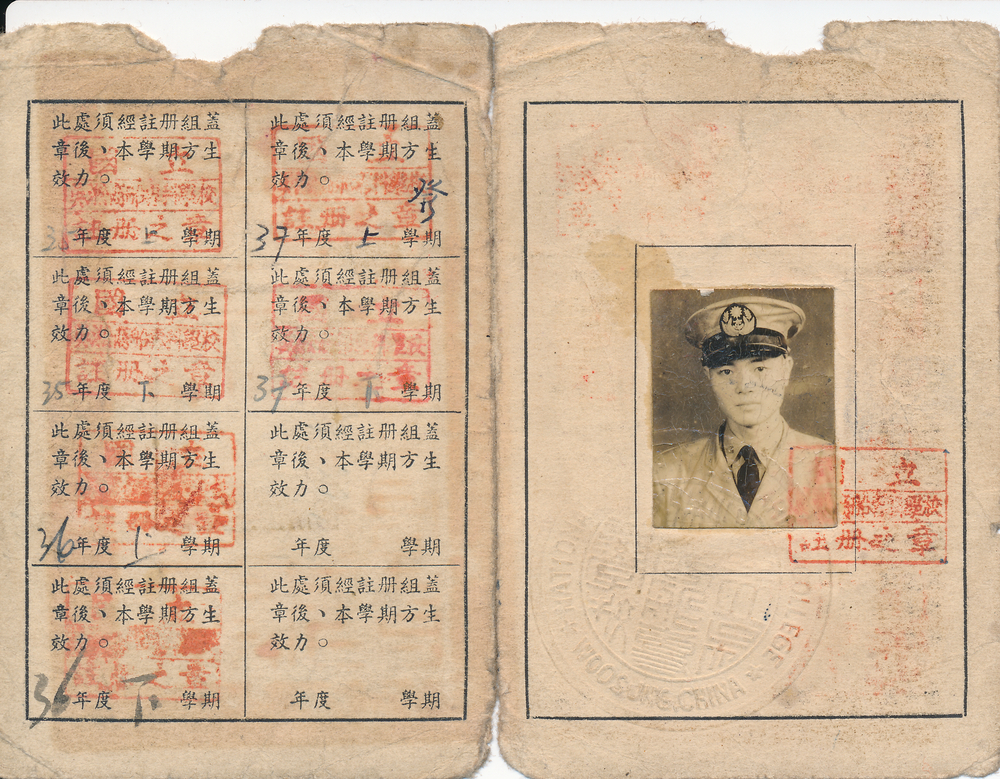 此處須經註册組蓋
章後、本學期方生
效力。
年度 上 學期
此處須經註册組蓋
章後、本學期方生
效力。
35年度 下 學期
此處須經註册組蓋
章後、本學期方生
效力。
36年度 上 學期
此處須經註册組蓋
章後、本學期方生
效力。
36年度 下 學期
此處須經註册組蓋
章後、本學期方生
效力。
37年度 上 學期
此處須經註册組蓋
章後、本學期方生
效力。
37年度 下 學期
此處須經註册組蓋
章後、本學期方生
效力。
年度 學期
此處須經註册組蓋
章後、本學期方生
效力。
年度 學期
國立
學校
註册之章
WOOSUNG, CHINA